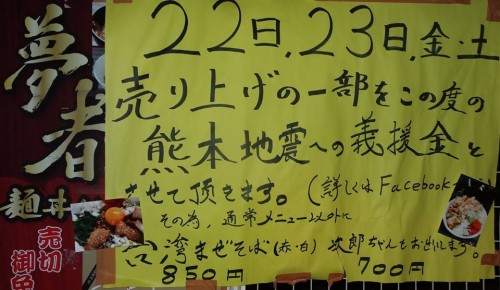 夢者
麺丼
売切
御免
22日,23日,金・土
売り上げの一部をこの度の
熊本地震への義援金と
させて頂きます。(詳しくはFacebook
その為、通常メニュー以外に
台湾まぜそば(赤・白) 次郎ちゃんをお出しします。
850円 700円